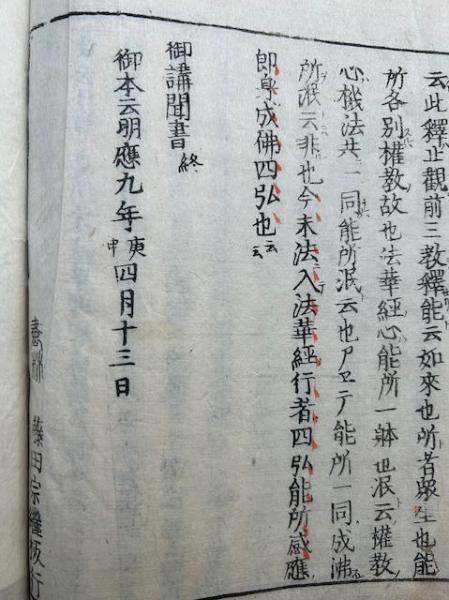 云此釋止觀前三教釋能云如來也所者衆生也能
所各別權教故也法華經心能所一躰也泯云權教
心機法共一同能所泯云也尸ヱテ能所一同成沸
所泯云非也今末法入法華經行者四弘能所感應
即身成佛四弘也云云
御講聞書終
御本云明應九年庚申四月十三日
藤田宗繼板行